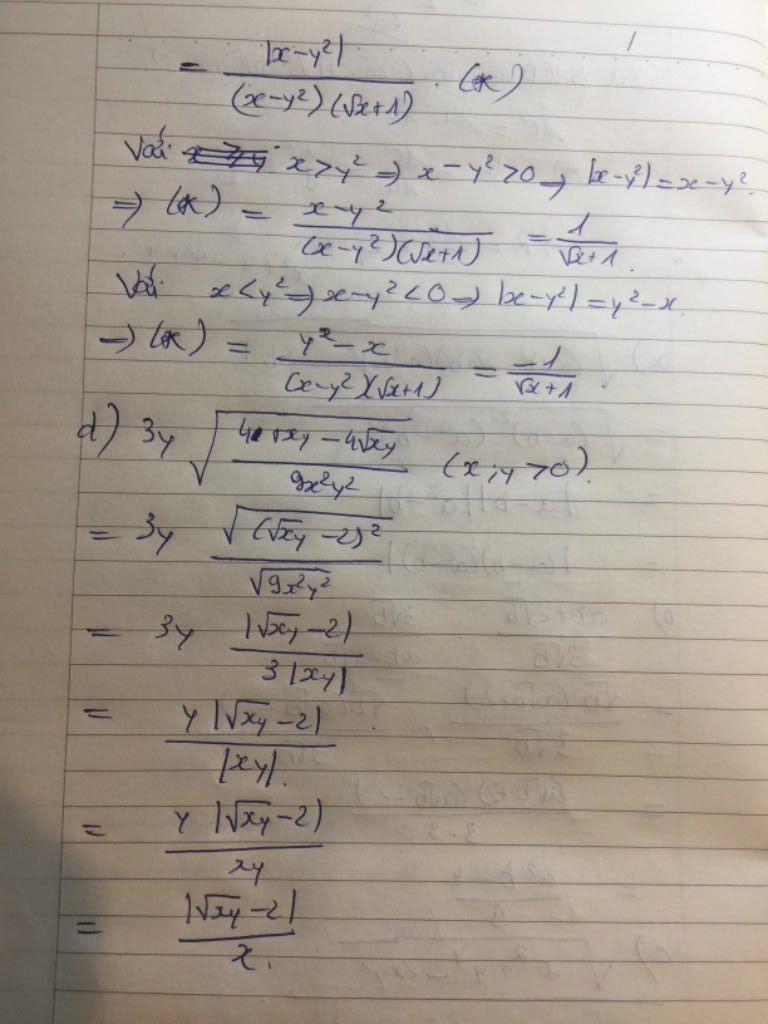 = |x-y²| / (x-y²)(√x+1) . (*)
Với x>y² => x-y²>0 => |x-y²|=x-y².
=> (*) = x-y² / (x-y²)(√x+1) = 1/√x+1.
Với x<y² => x-y²<0 => |x-y²|=y²-x.
=> (*) = y²-x / (x-y²)(√x+1) = -1/√x+1.
d) 3y √(4+xy-4√xy / 9x²y²) (x;y>0).
= 3y √(√xy-2)² / √9x²y²
= 3y |√xy-2| / 3|xy|
= y|√xy-2| / |xy|.
= y|√xy-2| / xy
= |√xy-2| / x.